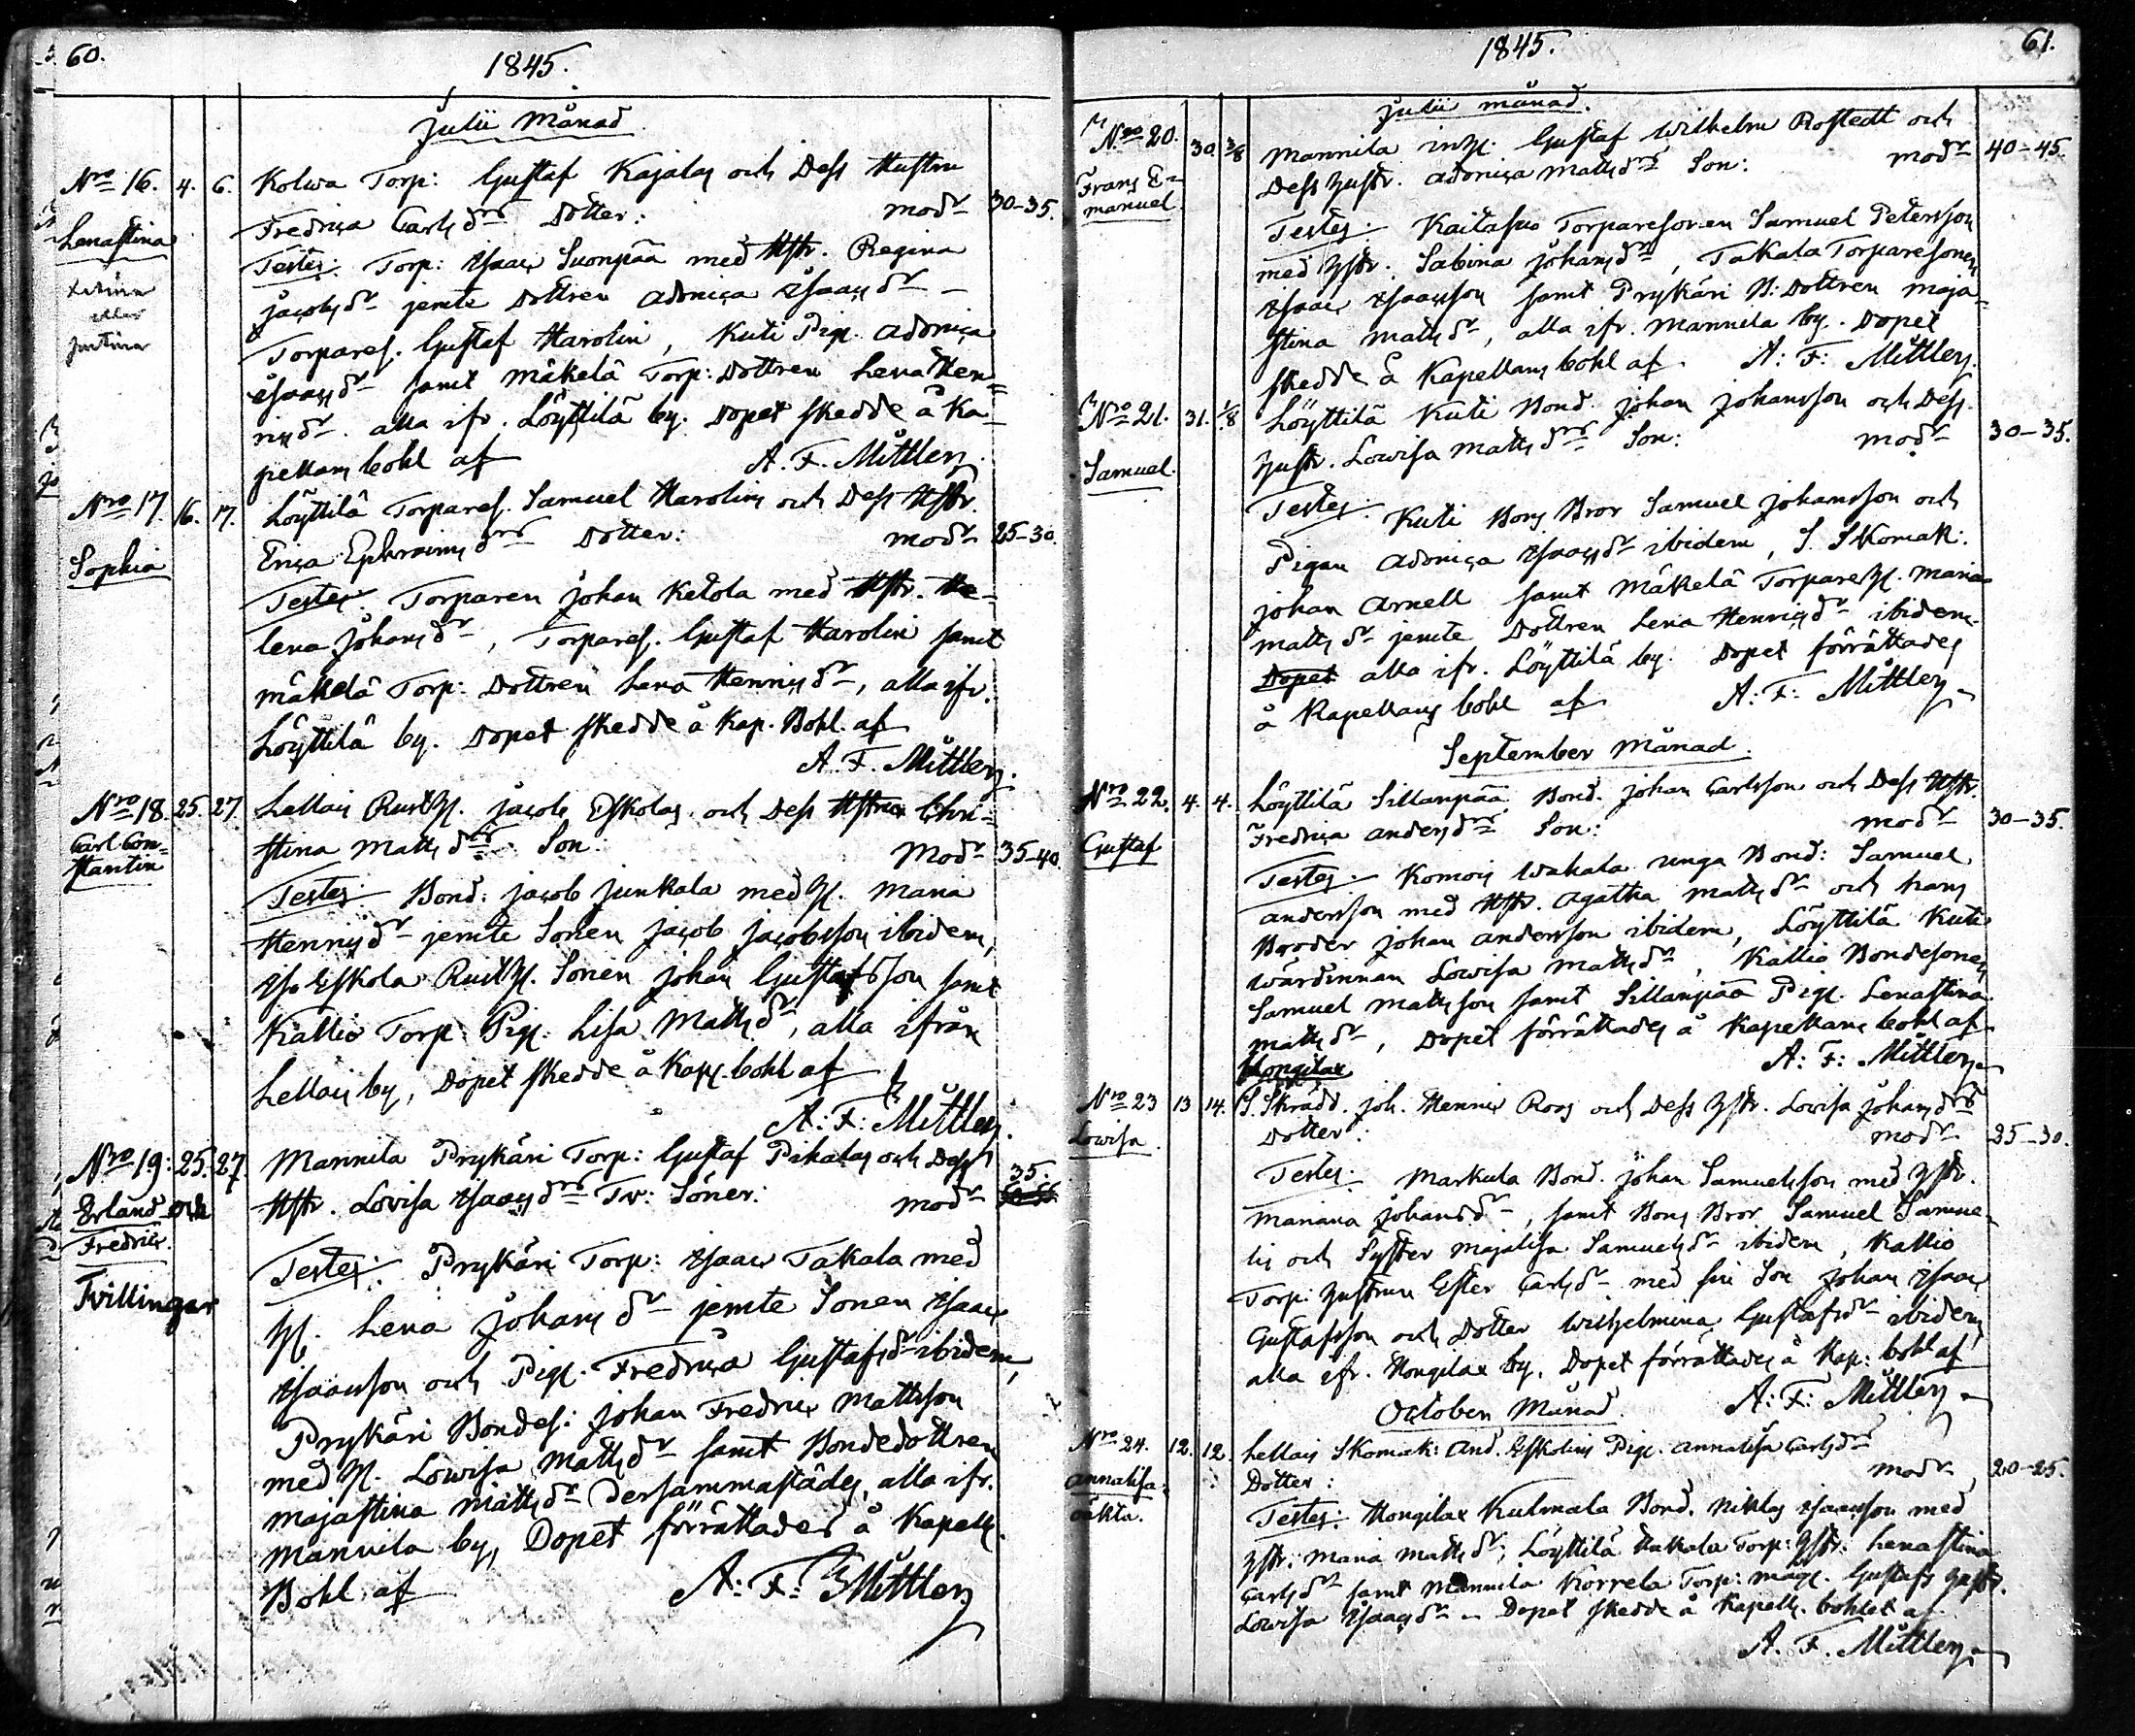 60.
1845.
Julii Månad
Nro 16. 4. 6. Kolwa Torp: Gustaf Kajalas och Dess Hustru
Lenastina Fredrica Carlsdrs Dotter: modr 30-35.
Testes: Torp: Isaac Suonpää med Hstr. Regina
eller Jacobsdr jemte Dottren Adorica Isaacsdr
Justina Torpares. Gustaf Harolin, Kuti Pig. Adorica
Isaacsdr samt Mäkelä Torp: Dottren Lena Hen=
ricsdr. alla ifr. Löyttilä by. Dopet skedde å Ka-
pellans bohl af A. F. Mittler.
Nro 17. 16. 17. Löyttilä Torpares. Samuel Harolins och Dess Hstr.
Sophia Erica Ephraimsdrs Dotter: modr 25-30.
Testes: Torparen Johan Ketola med Hstr. He-
lena Johansdr, Torpares. Gustaf Harolin samt
Mäkelä Torp: Dottren Lena Henricsdr, alla ifr.
Löyttilä by. Dopet skedde å Kap. Bohl. af
A. F. Mittler.
Nro 18. 25. 27. Lellais Rusth. Jacob Eskolas och Dess Hstrus Chri=
Carl Con= stina Mattsdrs Son. Modr 35-40
stantin
Testes: Bond: Jacob Junkala med H. Maria
Henricsdr jemte Sonen Jacob Jacobsson ibidem,
Iso Eskola Rusth. Sonen Johan Gustafsson samt
Kallio Torp: Pig: Lisa Mattsdr, alla ifrån
Lellais by, Dopet skedde å Kap. bohl af
A: F: Mittler.
Nro 19: 25. 27. Mannila Prykäri Torp: Gustaf Pihalas och Dess
Erland och Hstr. Lovisa Isaacsdrs Tv: Söner: modr 35.
Fredric.
Tvillingar
Testes: Prykäri Torp: Isaac Takala med
H. Lena Johansdr jemte Sonen Isaac
Isaacsson och Pig. Fredrica Gustafsdr ibidem,
Prykäri Bondes: Johan Fredric Mattsson
med H. Lowisa Mattsdr samt Bondedottren
Majastina Mattsdr dersammastädes, alla ifr.
Mannila by, Dopet förrättades å Kapells.
Bohl af A: F: Mittler
61.
1845.
Julii månad.
Nro 20. 30. 3/8 Mannila inh. Gustaf Wilhelm Rostedt och
Frans E= Dess Hustr. Adorica Mattsdrs Son: modr 40-45.
manuel.
Testes: Kaitasuo Torparesonen Samuel Petersson
med Hstr. Sabina Johansdr, Takala Torparesonen
Isaac Isaacsson samt Prykäri B: Dottren Maja=
stina Mattsdr, alla ifr. Mannila by. Dopet
skedde å Kapellans bohl af A: F: Mittler.
Nro 21. 31. 1/8 Löyttilä Kuti Bond. Johan Johansson och Dess
Samuel. Hustr. Lowisa Mattsdrs Son: modr 30-35.
Testes: Kuti Bons Bror Samuel Johansson och
Pigan Adorica Isaacsdr ibidem, S. Skomak:
Johan Arnell samt Mäkelä Torpareh. Maria
Mattsdr jemte Dottren Lena Henricsdr ibidem
Dopet alla ifr. Löyttilä by. Dopet förrättades
å Kapellans bohl af A: F: Mittler
September Månad.
Nro 22. 4. 4. Löyttilä Sillanpää Bond. Johan Carlsson och Dess Hstr.
Gustaf Fredrica Andersdrs Son: modr 30-35.
Testes: Komois Wahala unga Bond: Samuel
Andersson med Hstr. Agatha Mattsdr och hans
Broder Johan Andersson ibidem, Löyttilä Kuti
Wärdinnan Lowisa Mattsdr, Kallio Bondesonen
Samuel Mattsson samt Sillanpää Pig. Lenastina
Mattsdr, Dopet förrättades å Kapellans bohl af
Hongilax A: F: Mittler
Nro 23 13 14. S. Skrädd. Joh. Henric Roos och Dess Hstr. Lovisa Johansdrs
Lowisa. Dotter: modr 25-30.
Testes: Markula Bond. Johan Samuelsson med Hstr.
Mariana Johansdr, samt Bons Bror Samuel Samue-
lis och Syster Majalisa Samuelsdr ibidem, Kallio
Torp: Hustrun Ester Carlsdr med sin Son Johan Isaac
Gustafsson och Dotter Wilhelmina Gustafsdr ibidem
alla ifr. Hongilax by, Dopet förrättades å Kap: bohl af
October Månad. A: F: Mittler
Nro 24. 12. 12. Lellais Skomak: And. Eskolins Pig. Annalisa Carlsdrs
Annalisa. Dotter: modr 20-25.
oäkta.
Testes: Hongilax Kulmala Bond. Niklas Isaacsson med
Hstr. Maria Mattsdr, Löyttilä Hakala Torp: Hstr. Lenastina
Carlsdr samt Mannila Korrela Torp: måg. Gustafs Hustr.
Lowisa Isaacsdr. Dopet skedde å Kapells. bohlet af
A. F. Mittler